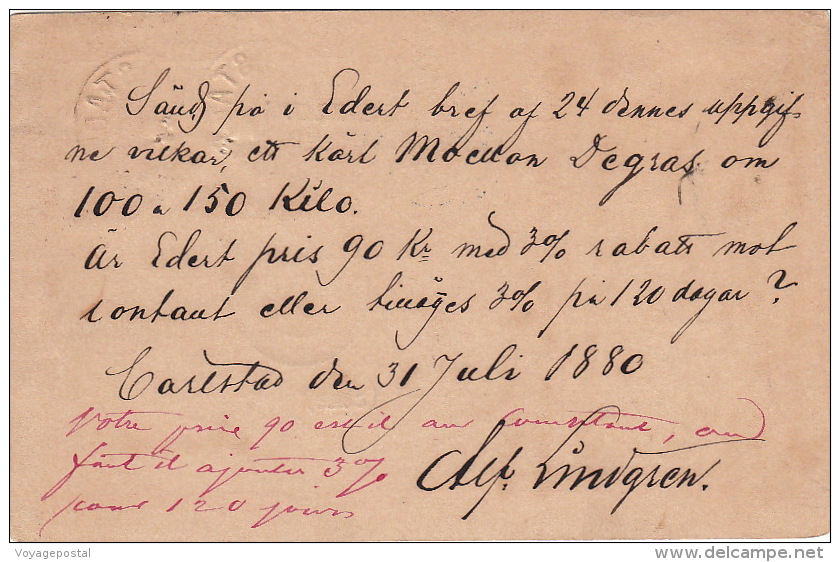 Sänd på i Edert bref af 24 dennes uppgif-
ne vilkar, ett kärl Moellon Degras om
100 a 150 Kilo.
Är Edert pris 90 Kr med 3% rabatt mot
contant eller tillöges 3% på 120 dagar?
Carlstad den 31 Juli 1880
Votre prix 90 est il au Comptant, ou
faut il ajouter 3%
pour 120 jours
Alf. Lindgren.
Voyagepostal
www.delcampe.net